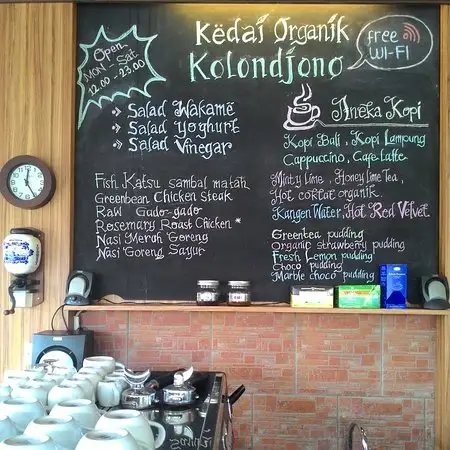 Kedai Organik
Kolondjono
Open
MON - Sat
12.00 - 23.00
free
WI-FI
Salad Wakame
Salad Yoghurt
Salad Vinegar
Fish Katsu sambal matah
Greenbean Chicken steak
Raw Gado-gado
Rosemary Roast Chicken *
Nasi Merah Goreng
Nasi Goreng Sayur
Aneka Kopi
Kopi Bali, Kopi Lampung
Cappuccino, Cafe Latte
Minty lime, Honey lime Tea,
Hot coktat organik
Kangen Water, Hot Red Velvet
Greentea pudding
Organic strawberry pudding
Fresh Lemon pudding
Choco pudding
Marble choco pudding